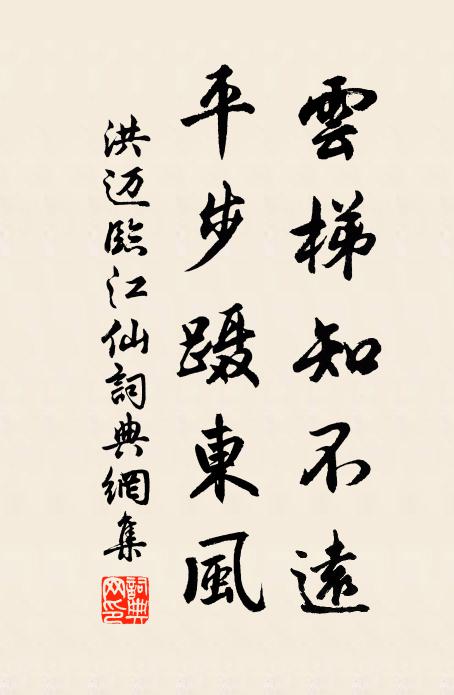 雲梯知不遠
平步蹑東風
洪迈臨江仙詞典網集
詞典网印